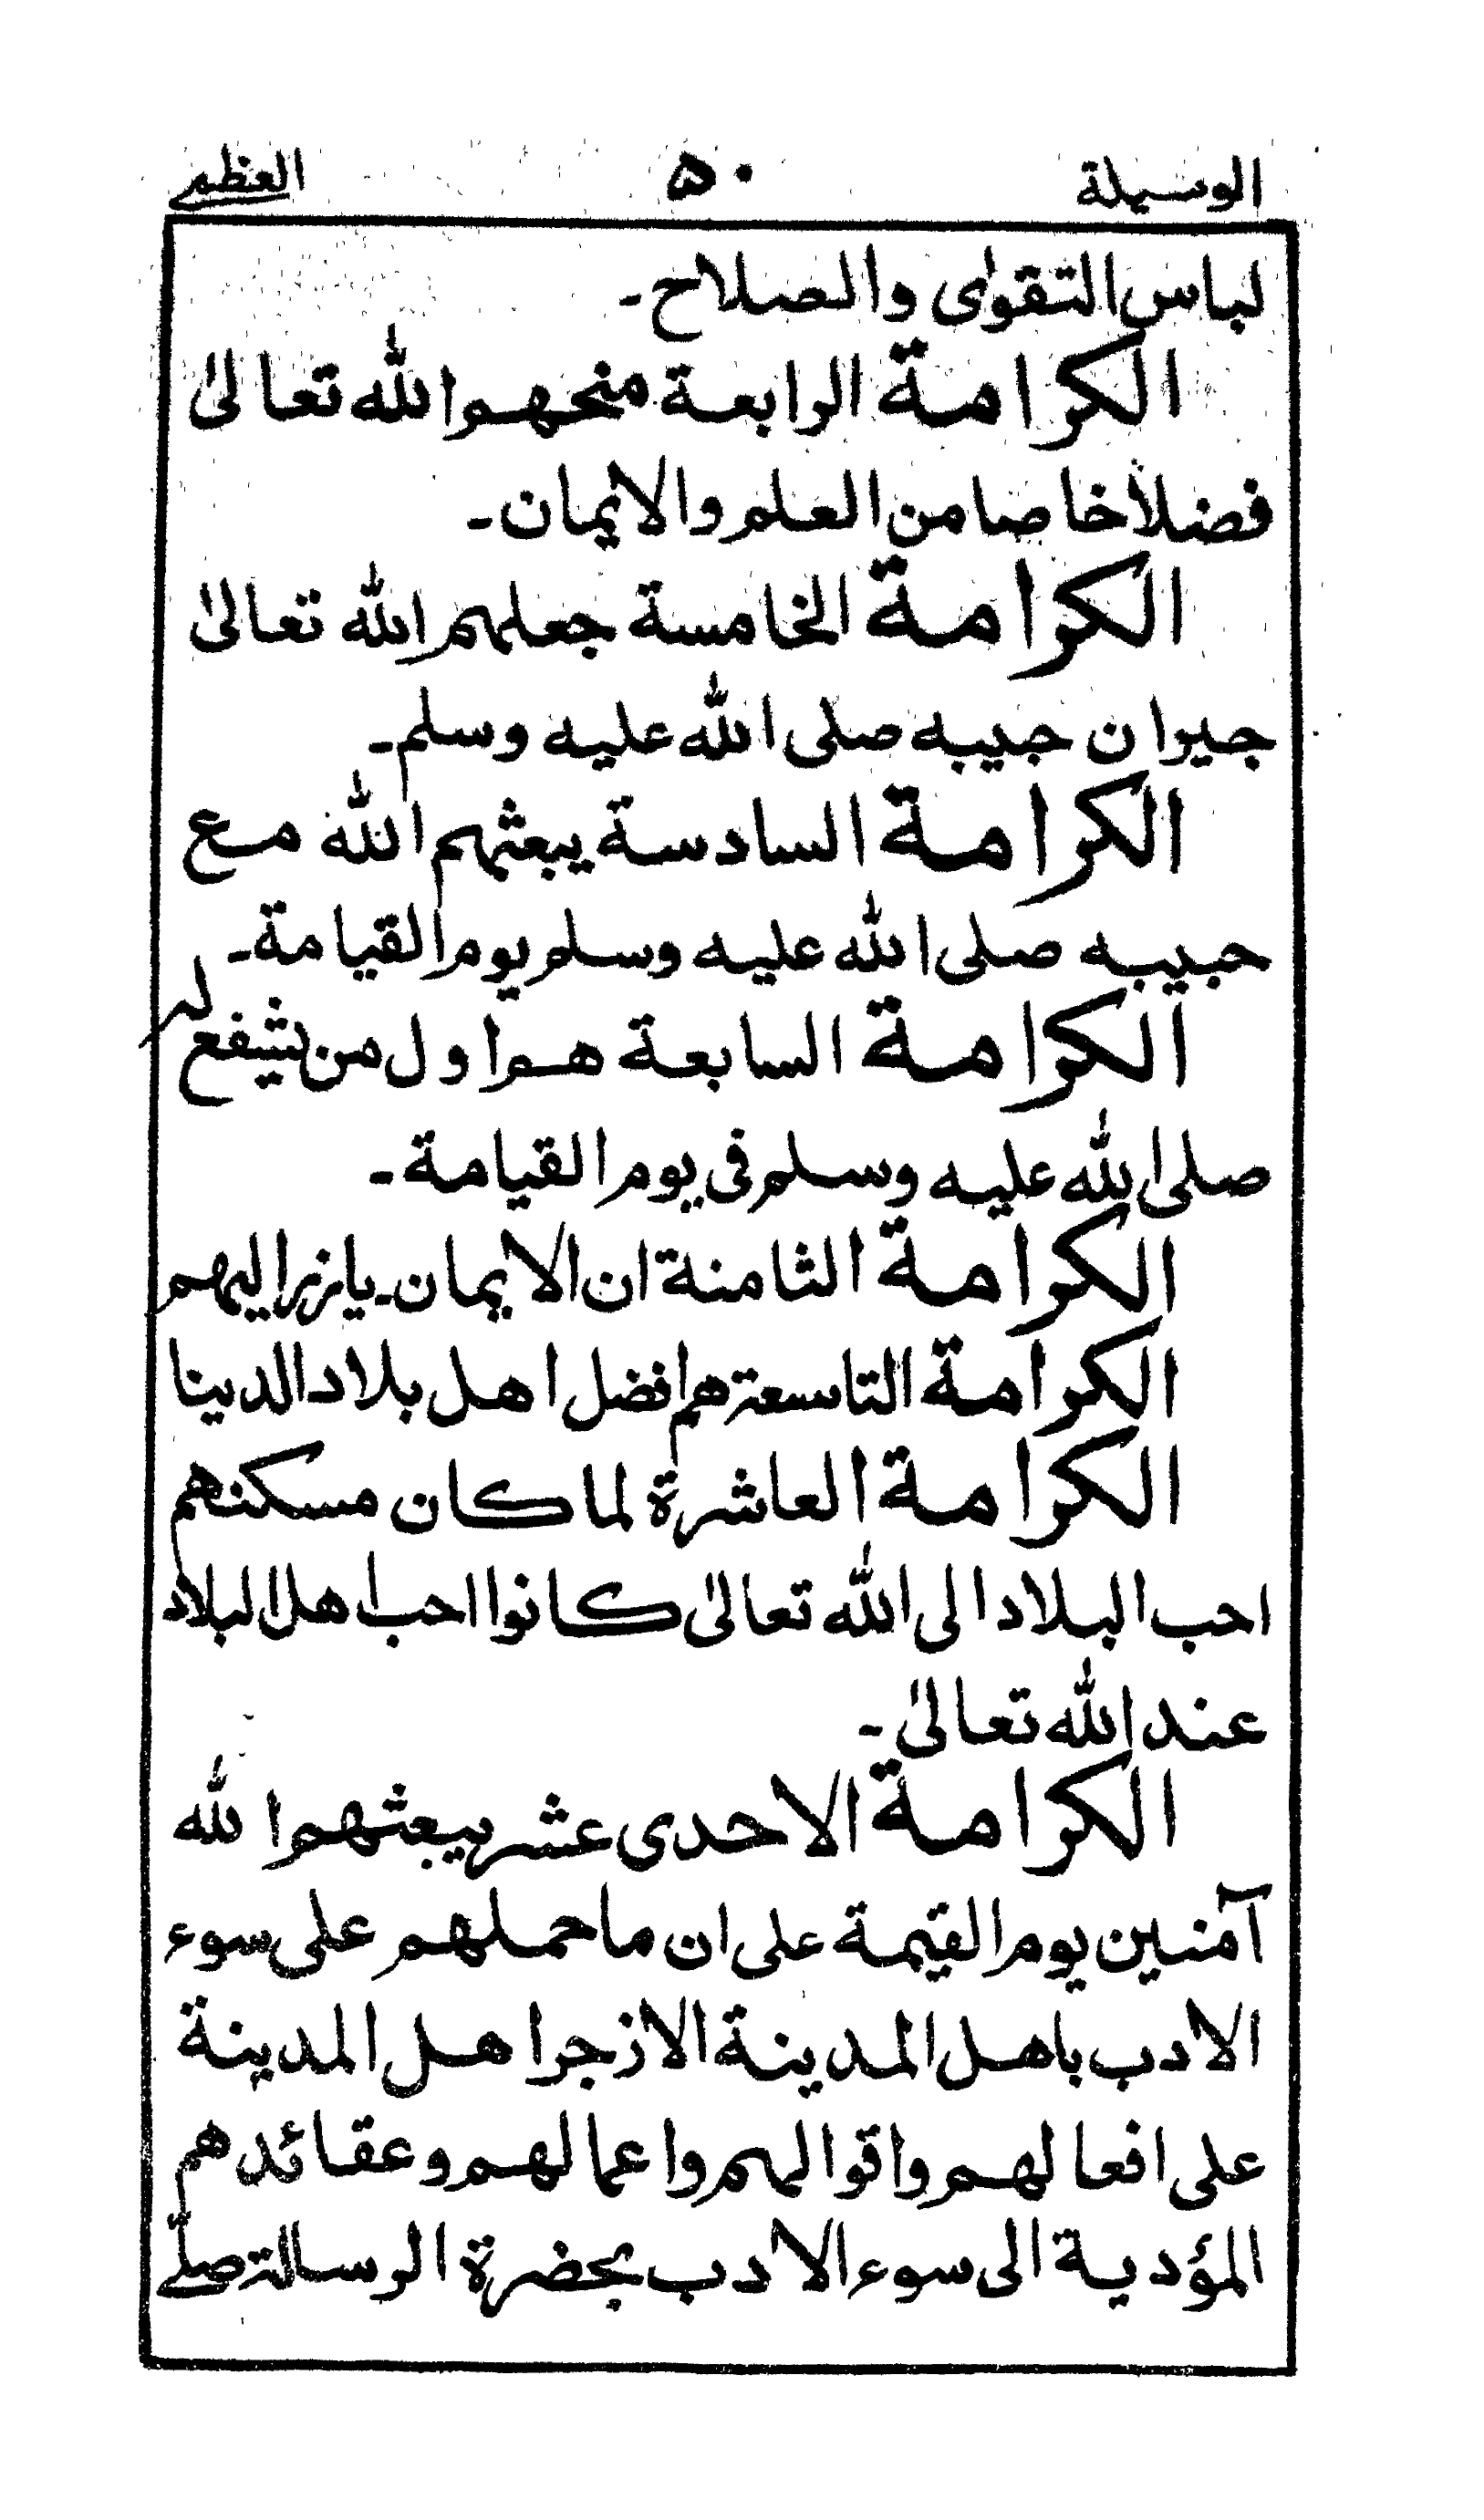 الوسيلة ۵۰ العظمے
لباس التقوٰى والصلاح۔
الكرامة الرابعة منحهم الله تعالىٰ
فضلاً خاصا من العلم والايمان۔
الكرامة الخامسة جعلهم الله تعالىٰ
جيران حبيبه صلى الله عليه وسلم۔
الكرامة السادسة يبعثهم الله مع
حبيبه صلى الله عليه وسلم يوم القيامة۔
الكرامة السابعة هم اول من يشفع لهم
صلى الله عليه وسلم فى يوم القيامة۔
الكرامة الثامنة ان الايمان۔يازر اليهم
الكرامة التاسعة هم افضل اهل بلاد الدينا
الكرامة العاشرة لما كان مسكنهم
احب البلاد الى الله تعالىٰ كانوا احب اهل البلاد
عند الله تعالىٰ۔
الكرامة الاحدى عشر يبعثهم الله
آمنين يوم القيمة على ان ما حملهم على سوء
الادب باهل المدينة الازجر اهل المدينة
على افعالهم واقوالهم واعمالهم وعقائدهم
المؤدية الى سوء الادب بحضرة الرسالة صلّے